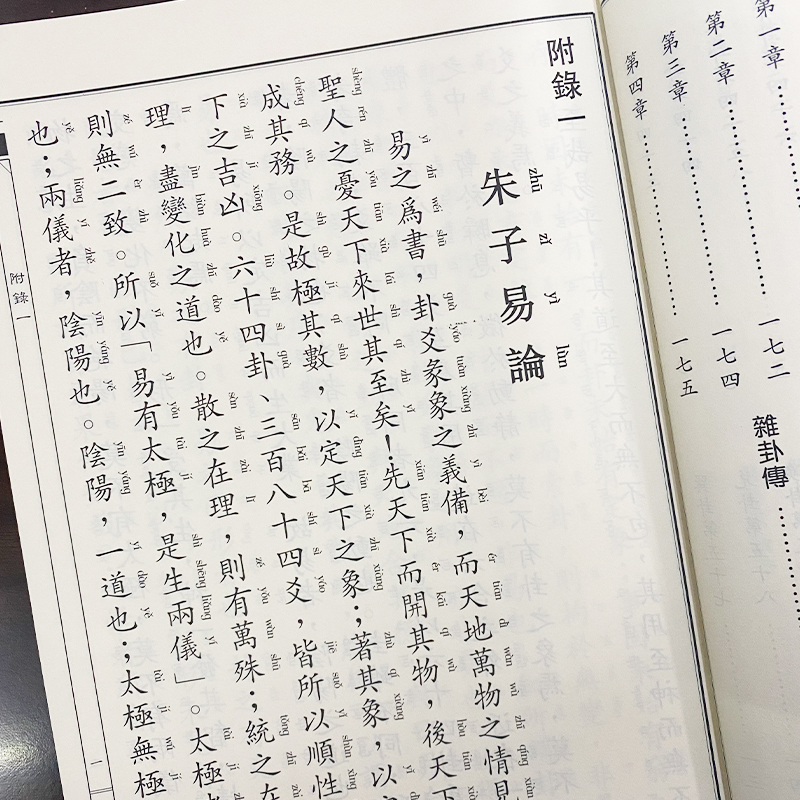 第一章……一七二
第二章……一七四
第三章……一七五
第四章
雜卦傳……
附錄一
朱子易論
易之爲書，卦爻彖象之義備，而天地萬物之情見
聖人之憂天下來世其至矣！先天下而開其物，後天下
成其務。是故極其數，以定天下之象；著其象，以
下之吉凶。六十四卦、三百八十四爻，皆所以順性
理，盡變化之道也。散之在理，則有萬殊；統之在
則無二致。所以「易有太極，是生兩儀」。太極
也；兩儀者，陰陽也。陰陽，一道也；太極無極
附錄一
一